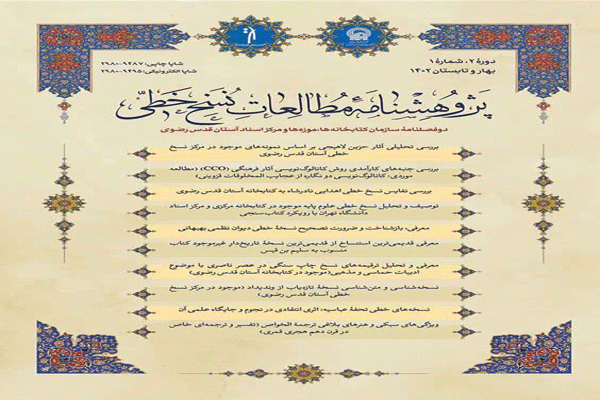 دورهٔ ۲، شمارهٔ ۱
بهار و تابستان ۱۴۰۲
شاپا چاپی: ۹۴۸۷-۲۹۸۰
شاپا الکترونیکی: ۹۴۹۵-۲۹۸۰
پژوهشنامهٔ مطالعات نُسَخ خطّی
دوفصلنامهٔ سازمان کتابخانه‌ها، موزه‌ها و مرکز اسناد آستان قدس رضوی
بررسی تحلیلی آثار حزین لاهیجی بر اساس نمونه‌های موجود در مرکز نسخ
خطی آستان قدس رضوی
بررسی جنبه‌های کارآمدی روش کاتالوگ‌نویسی آثار فرهنگی (CCO) (مطالعه
موردی: کاتالوگ‌نویسی دو نگاره از عجایب المخلوقات قزوینی)
بررسی نفایس نسخ خطی اهدایی نادرشاه به کتابخانه آستان قدس رضوی
توصیف و تحلیل نسخ خطی علوم پایه موجود در کتابخانه مرکزی و مرکز اسناد
دانشگاه تهران با رویکرد کتاب‌سنجی
معرفی، بازشناخت و ضرورت تصحیح نسخهٔ خطی دیوان نظمی بهبهانی
معرفی قدیمی‌ترین استنساخ از قدیمی‌ترین نسخهٔ تاریخ‌دار غیرموجود کتاب
منسوب به سلیم بن قیس
معرفی و تحلیل ترقیمه‌های نسخ چاپ سنگی در عصر ناصری با موضوع
ادبیات حماسی و مذهبی (موجود در کتابخانه آستان قدس رضوی)
نسخه‌شناسی و متن‌شناسی نسخهٔ تازه‌یاب از وندیداد (موجود در مرکز نسخ
خطی آستان قدس رضوی)
نسخه‌های خطی تحفهٔ عباسیه، اثری انتقادی در نجوم و جایگاه علمی آن
ویژگی‌های سبکی و هنرهای بلاغی ترجمة الخواص (تفسیر و ترجمه‌ای خاص
در قرن دهم هجری قمری)